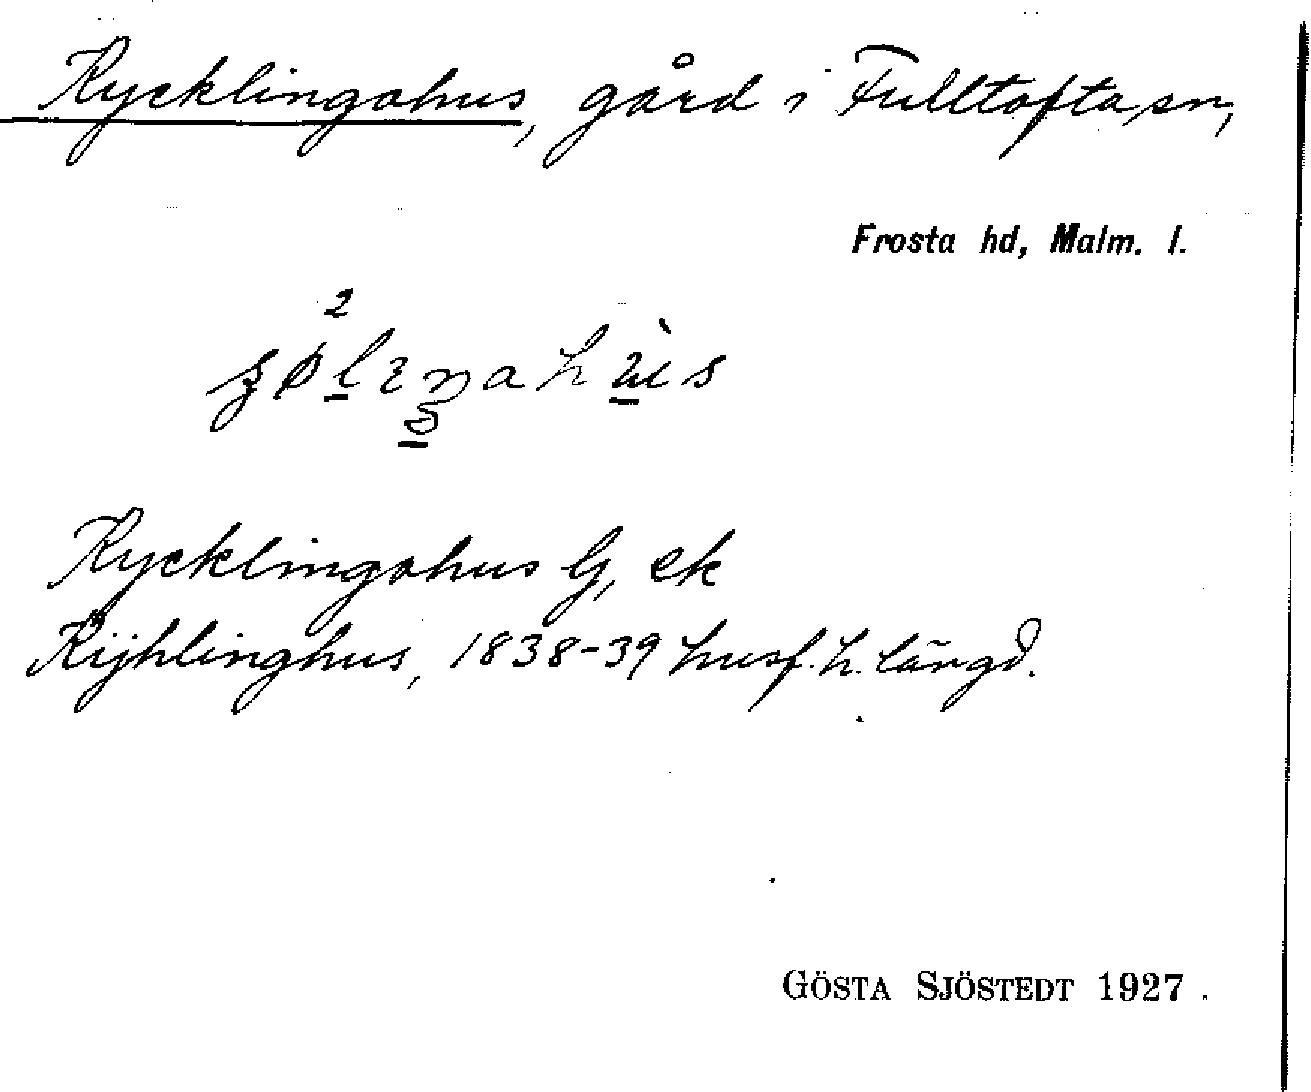 Kycklingahus, gård i Fulltofta sn,
Frosta hd, Malm. l.
Kycklingahus G, ek
Kijhlinghus, 1838-39 husf. h. längd.
GÖSTA SJÖSTEDT 1927.